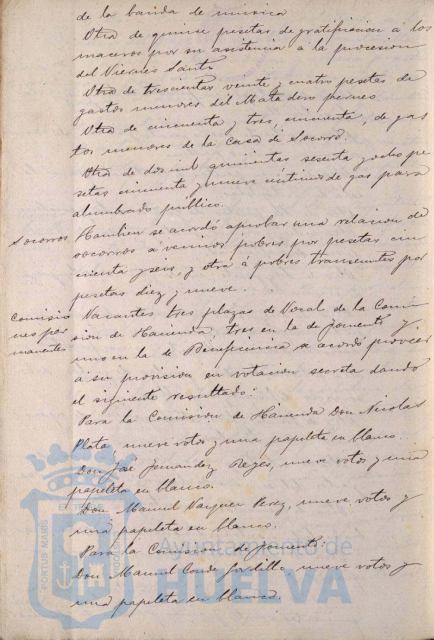 de la banda de música
Otra de quince pesetas de gratificacion á los
maceros por su asistencia á la procesion
del Viernes Santo
Otra de trescientas veinte y cuatro pesetas de
gastos menores del Matadero
Otra de cincuenta y tres, cincuenta, de gas
tos menores de la Casa de Socorro.
Otra de dos mil quinientas sesenta y ocho pe
setas cincuenta y nueve céntimos de gas para
alumbrado público.
Socorros Tambien se acordó aprobar una relacion de
socorros a vecinos pobres por pesetas cin
cuenta y seis, y otra á pobres transeuntes por
pesetas diez y nueve.
Comisio
nes per
manentes
Vacantes tres plazas de Vocal de la Comi
sion de Hacienda, tres en la de Fomento y
uno en la de Beneficencia se acordó proveer
á su provision en votacion secreta dando
el siguiente resultado:
Para la Comision de Hacienda Don Nicolas
Plata nueve votos y una papeleta en blanco.
Don José Fernandez Reyes, nueve votos y una
papeleta en blanco.
Don Manuel Vazquez Perez, nueve votos y
una papeleta en blanco.
Para la Comision de Fomento:
Don Manuel Conde Gordillo nueve votos y
una papeleta en blanco.
PORTUS MARIS
Ayuntamiento de
HUELVA